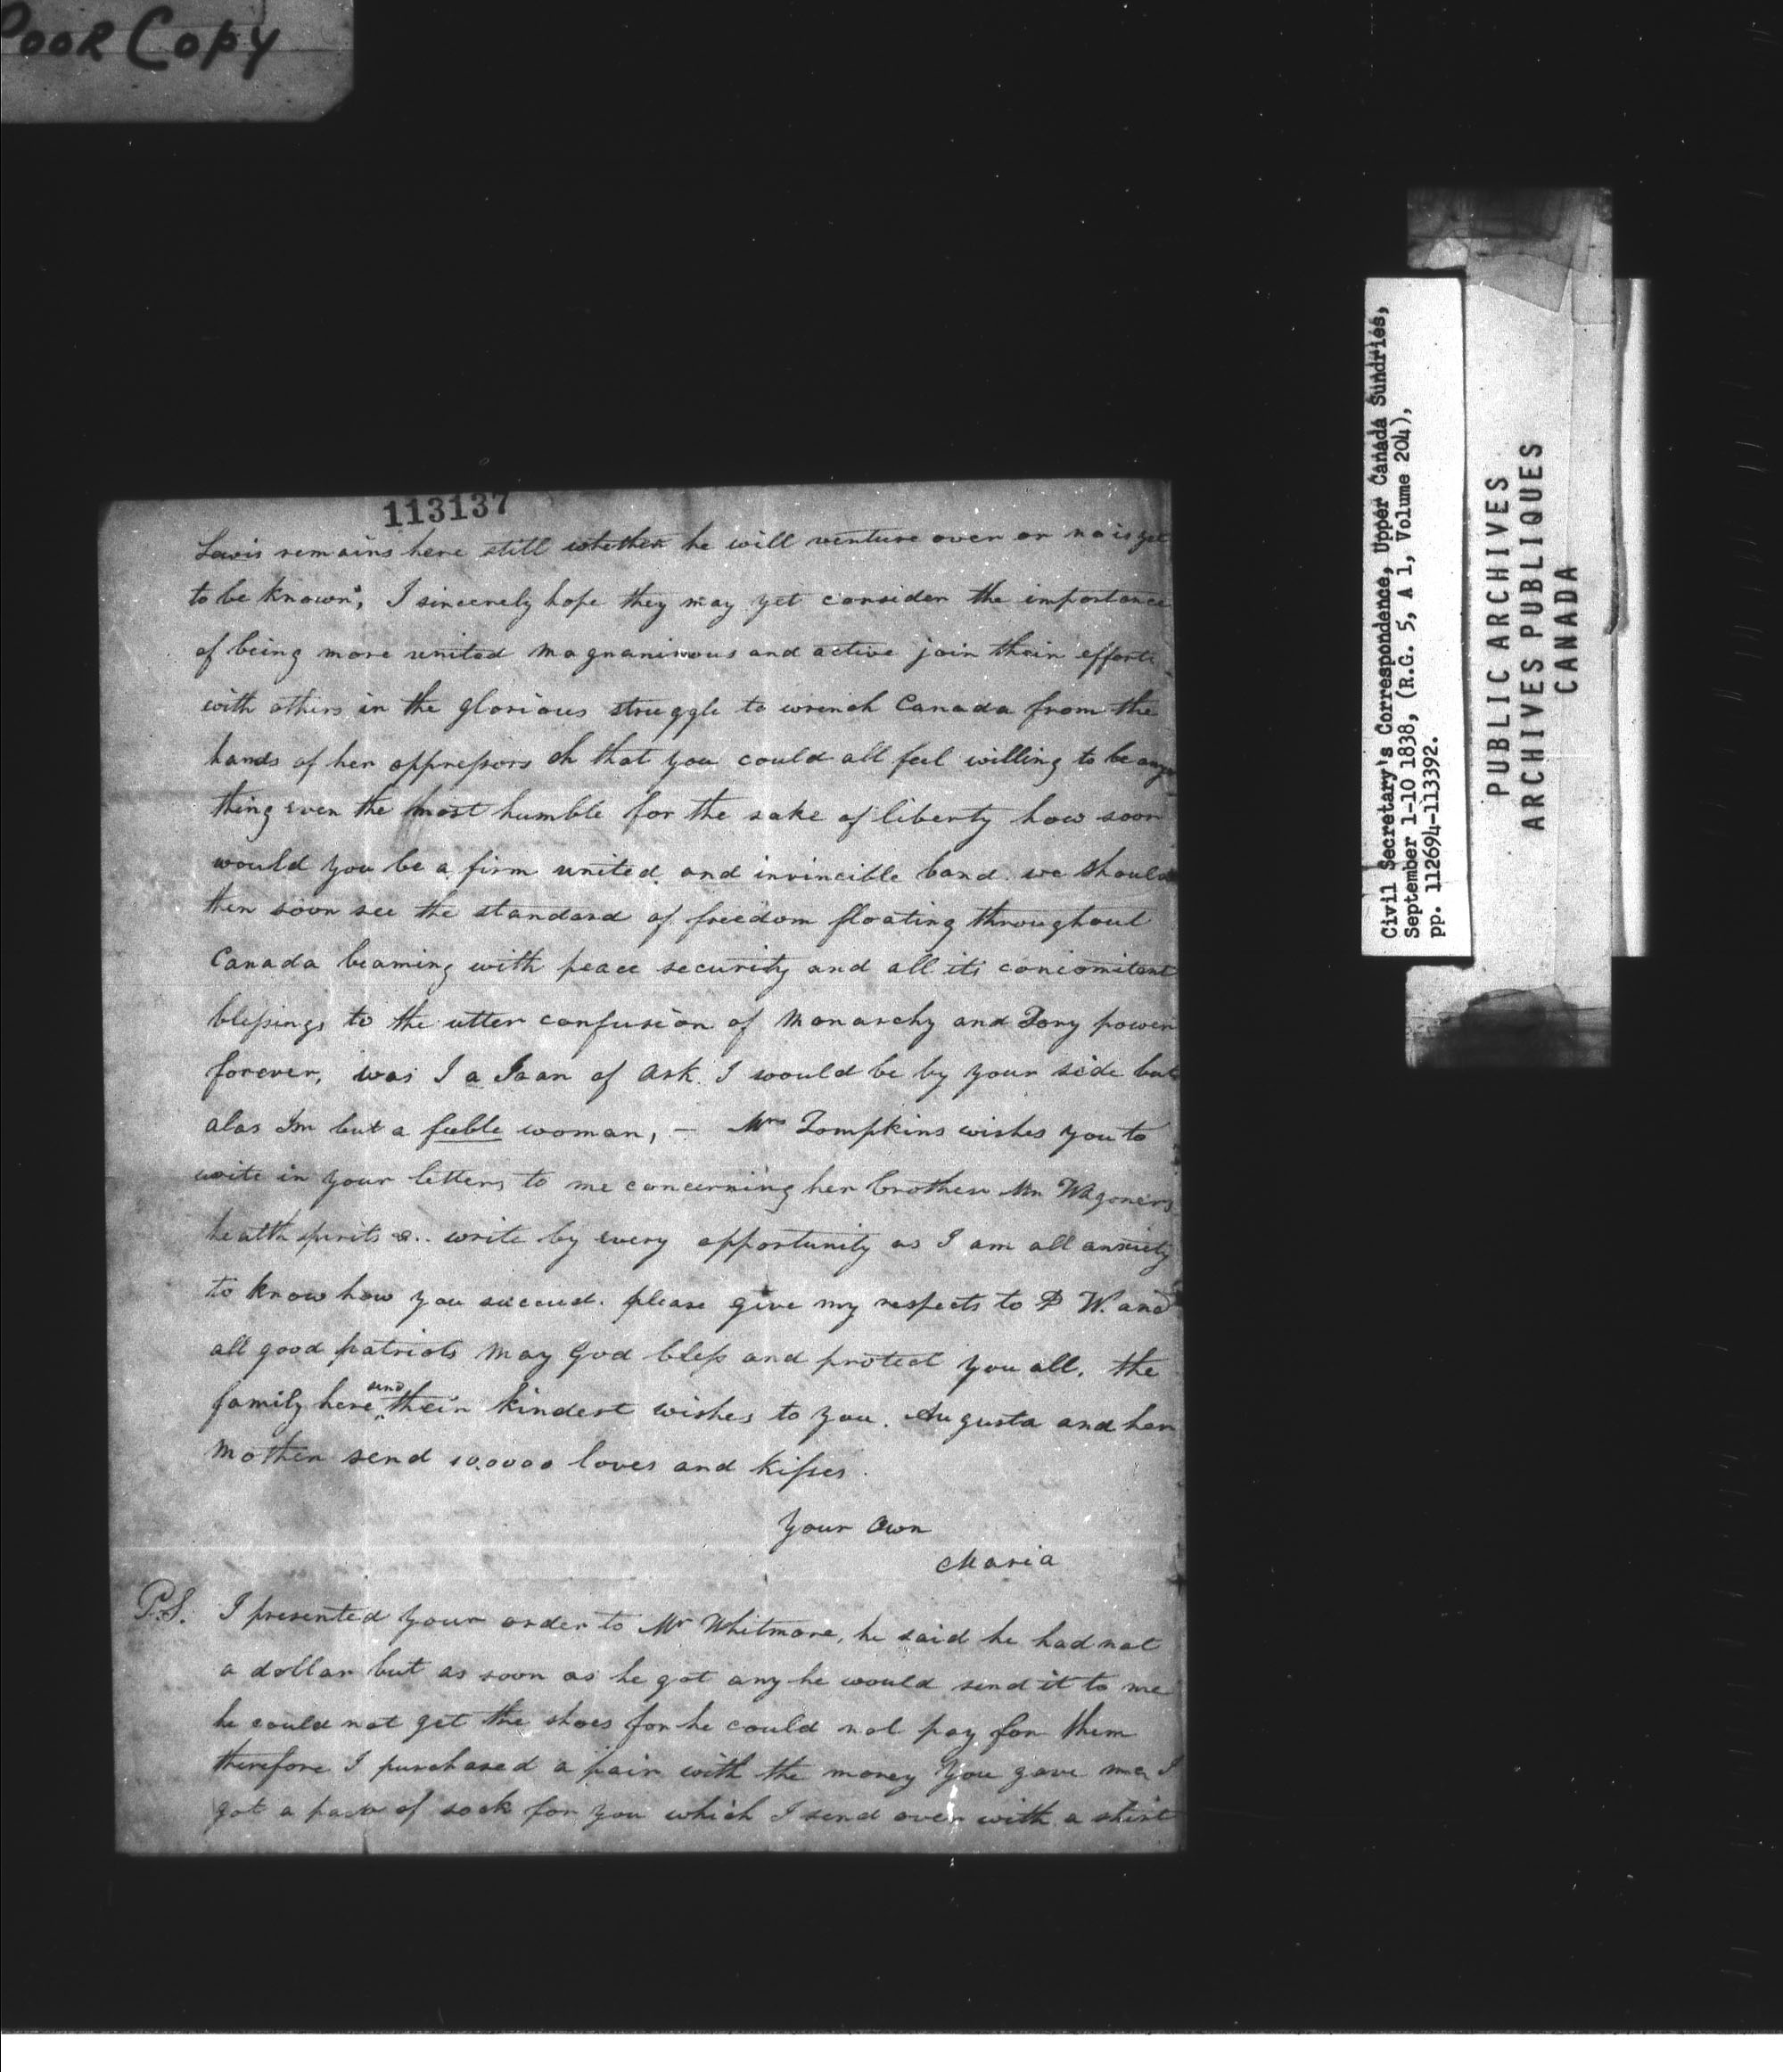 Poor Copy
113137
Lewis remains here still whether he will venture over or no is yet
to be known, I sincerely hope they may yet consider the importance
of being more united magnanimous and active join their efforts
with others in the glorious struggle to wrench Canada from the
hands of her oppressors oh that you could all feel willing to be any
thing even the most humble for the sake of liberty how soon
would you be a firm united and invincible band we should
then soon see the standard of freedom floating throughout
Canada beaming with peace security and all its concomitant
blessings to the utter confusion of Monarchy and Tory power
forever, was I a Joan of Ark I would be by your side but
alas Im but a feeble woman, — Mrs Tompkins wishes you to
write in your letters to me concerning her brother Mr Wagoners
health spirits &.. write by every opportunity as I am all anxiety
to know how you succeed. please give my respects to D W. and
all good patriots may God bless and protect you all. the
family here send their kindest wishes to you. Augusta and her
Mother send 10.0000 loves and kisses.
Your Own
Maria
P.S. I presented your order to Mr Whitmore, he said he had not
a dollar but as soon as he got any he would send it to me
he could not get the shoes for he could not pay for them
therefore I purchased a pair with the money you gave me I
got a pair of sock for you which I send over with a shirt
Civil Secretary's Correspondence, Upper Canada Sundries,
September 1-10 1838, (R.G. 5, A 1, Volume 204),
pp. 112694-113392.
PUBLIC ARCHIVES
ARCHIVES PUBLIQUES
CANADA